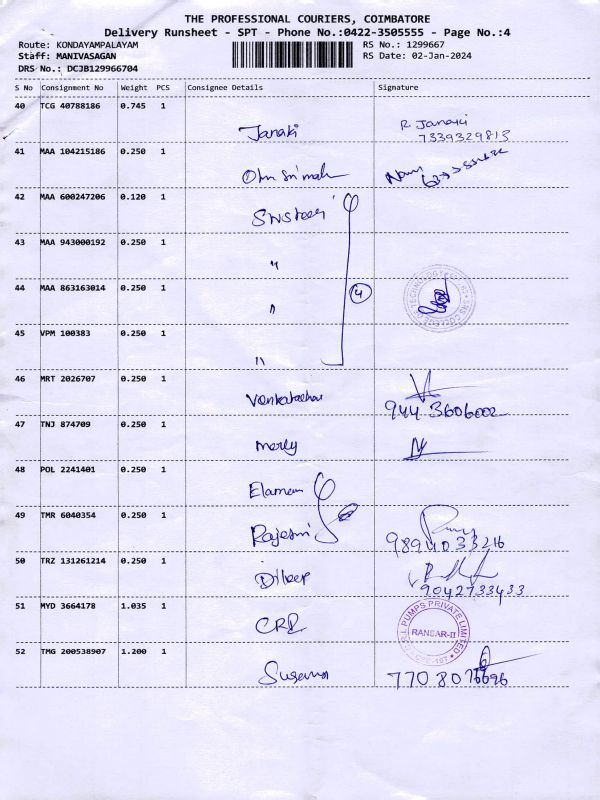 THE PROFESSIONAL COURIERS, COIMBATORE
Delivery Runsheet - SPT - Phone No.:0422-3505555 - Page No.:4
Route: KONDAYAMPALAYAM
RS No.: 1299667
Staff: MANIVASAGAN
RS Date: 02-Jan-2024
DRS No.: DCJB129966704
S No Consignment No Weight PCS Consignee Details Signature
40 TCG 40788186 0.745 1 Janaki R. Janaki
7339329813
41 MAA 104215186 0.250 1
42 MAA 600247206 0.120 1
43 MAA 943000192 0.250 1 "
44 MAA 863163014 0.250 1 " 4
45 VPM 100383 0.250 1 "
46 MRT 2026707 0.250 1
944 3606002
47 TNJ 874709 0.250 1
48 POL 2241401 0.250 1
49 TMR 6040354 0.250 1
9894033216
50 TRZ 131261214 0.250 1 Dileep
9042733433
51 MYD 3664178 1.035 1 PUMPS PRIVATE LIMITED
RANGAR-II
52 TMG 200538907 1.200 1